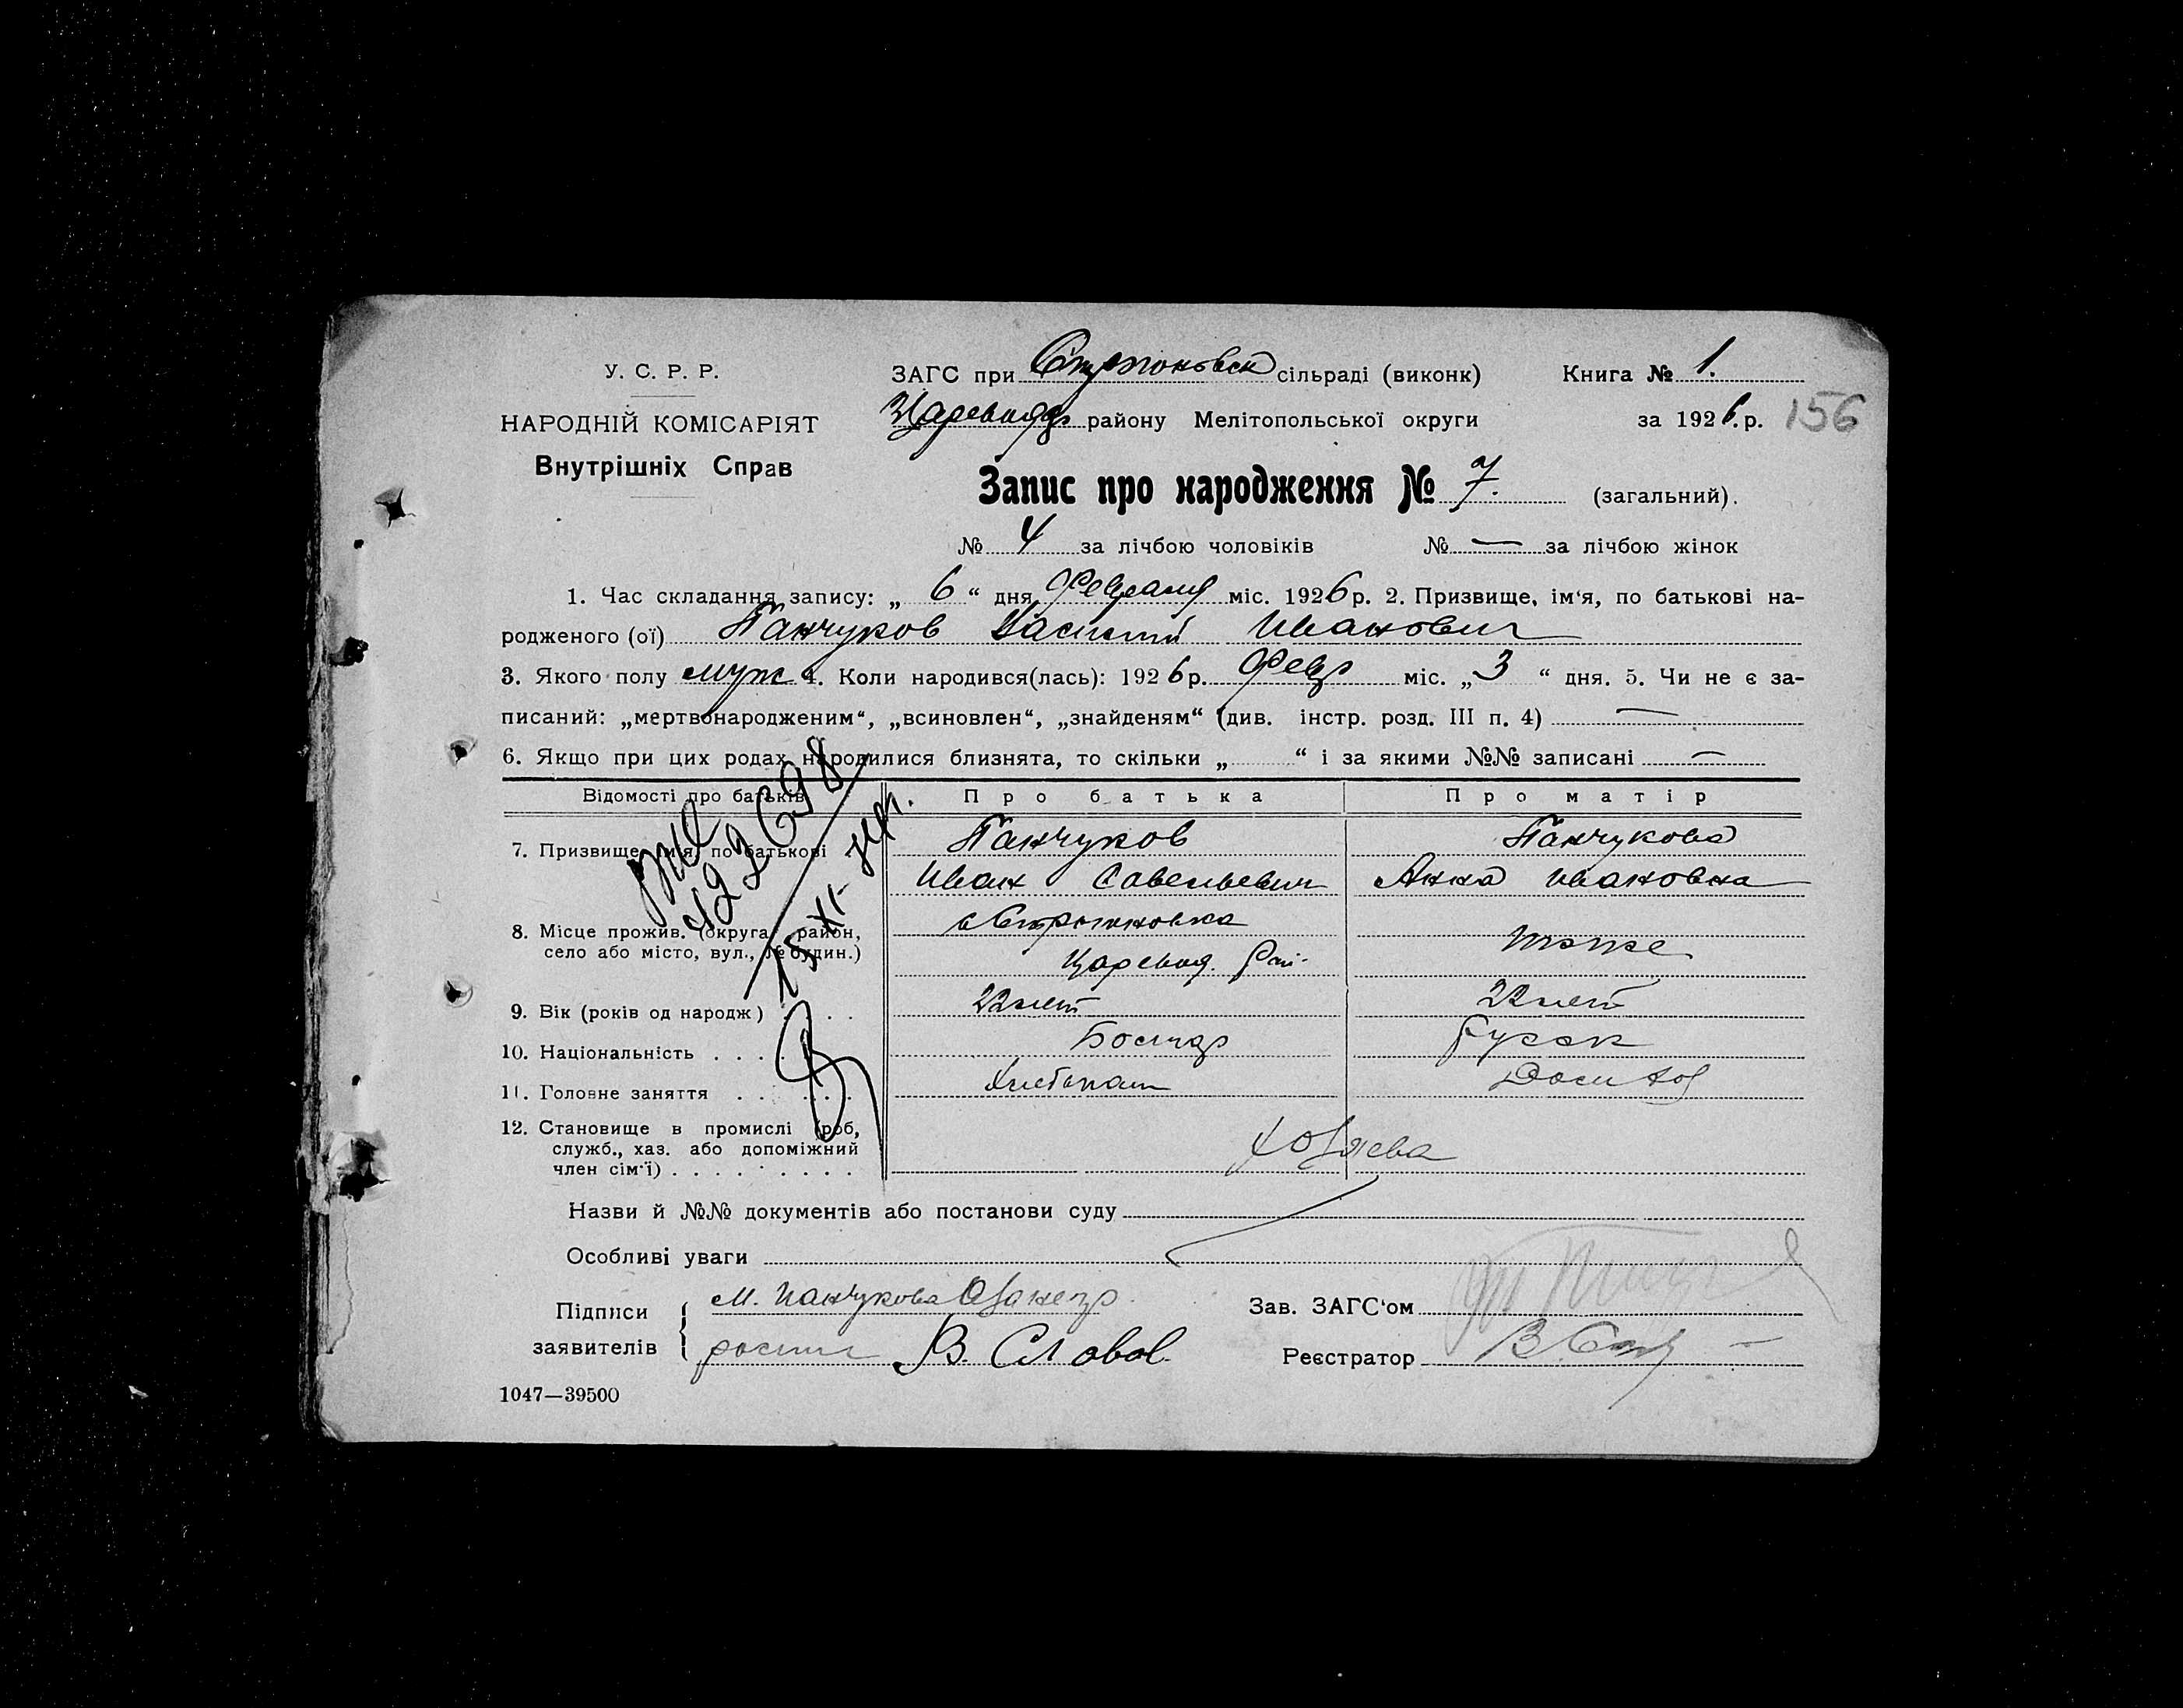 У. С. Р. Р.
НАРОДНІЙ КОМІСАРІЯТ
Внутрішніх Справ
ЗАГС при сільраді (виконк) Книга № 1.
району Мелітопольської округи за 1926.р. 156
Запис про народження № 7. (загальний).
№ 4 за лічбою чоловіків № — за лічбою жінок
1. Час складання запису: „ 6 “ дня Февраля міс. 1926 р. 2. Призвище, ім‘я, по батькові на-
родженого (ої) Панчуков Василий Иванович
3. Якого полу муж 4. Коли народився(лась): 1926 р. Февр міс. „ 3 “ дня. 5. Чи не є за-
писаний: „мертвонародженим“, „всиновлен“, „знайденям“ (див. інстр. розд. III п. 4) —
6. Якщо при цих родах народилися близнята, то скільки „ “ і за якими №№ записані —
Відомості про батьків Про батька Про матір
7. Призвище, ім‘я, по батькові Панчуков Панчукова
Иван Савельевич Анна Ивановна
8. Місце прожив. (округа, район,
село або місто, вул., № будин.) тоже
Царевод. Рай-
9. Вік (років од народж) 22 лет 22 лет
10. Національність Болгар Русск
11. Головне заняття Хлебопаш
12. Становище в промислі (роб,
служб., хаз. або допоміжний
член сім‘ї)
Назви й №№ документів або постанови суду
Особливі уваги
Підписи М. Панчукова Зав. ЗАГС‘ом
заявителів В. Реєстратор
1047—39500